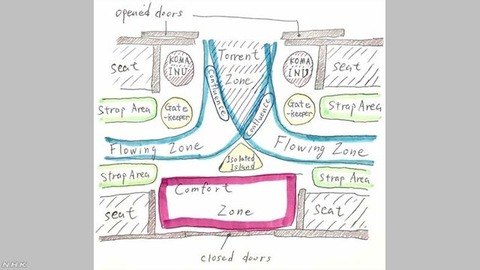 opened doors
seat
KOMA
INU
Torrent
Zone
KOMA
INU
seat
Confluence
Confluence
Strap Area
Gate
-keeper
Gate
-keeper
Strap Area
Flowing Zone
Flowing Zone
Isolated
Island
Strap Area
Strap Area
Comfort
Zone
seat
seat
closed doors
NHK